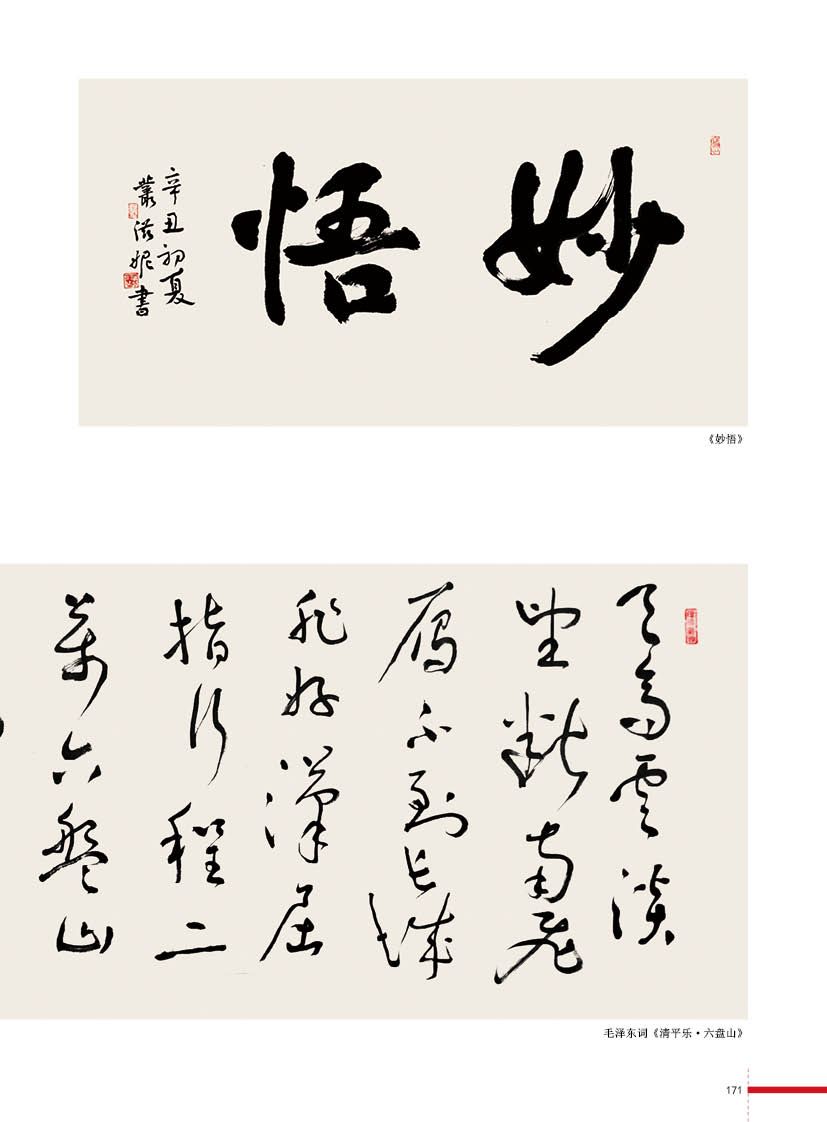 妙悟
辛丑初夏
叢滋妮書
《妙悟》
天高雲淡
望斷南飛
雁不到长城
非好漢屈
指行程二
萬六盤山
毛泽东词《清平乐·六盘山》
171